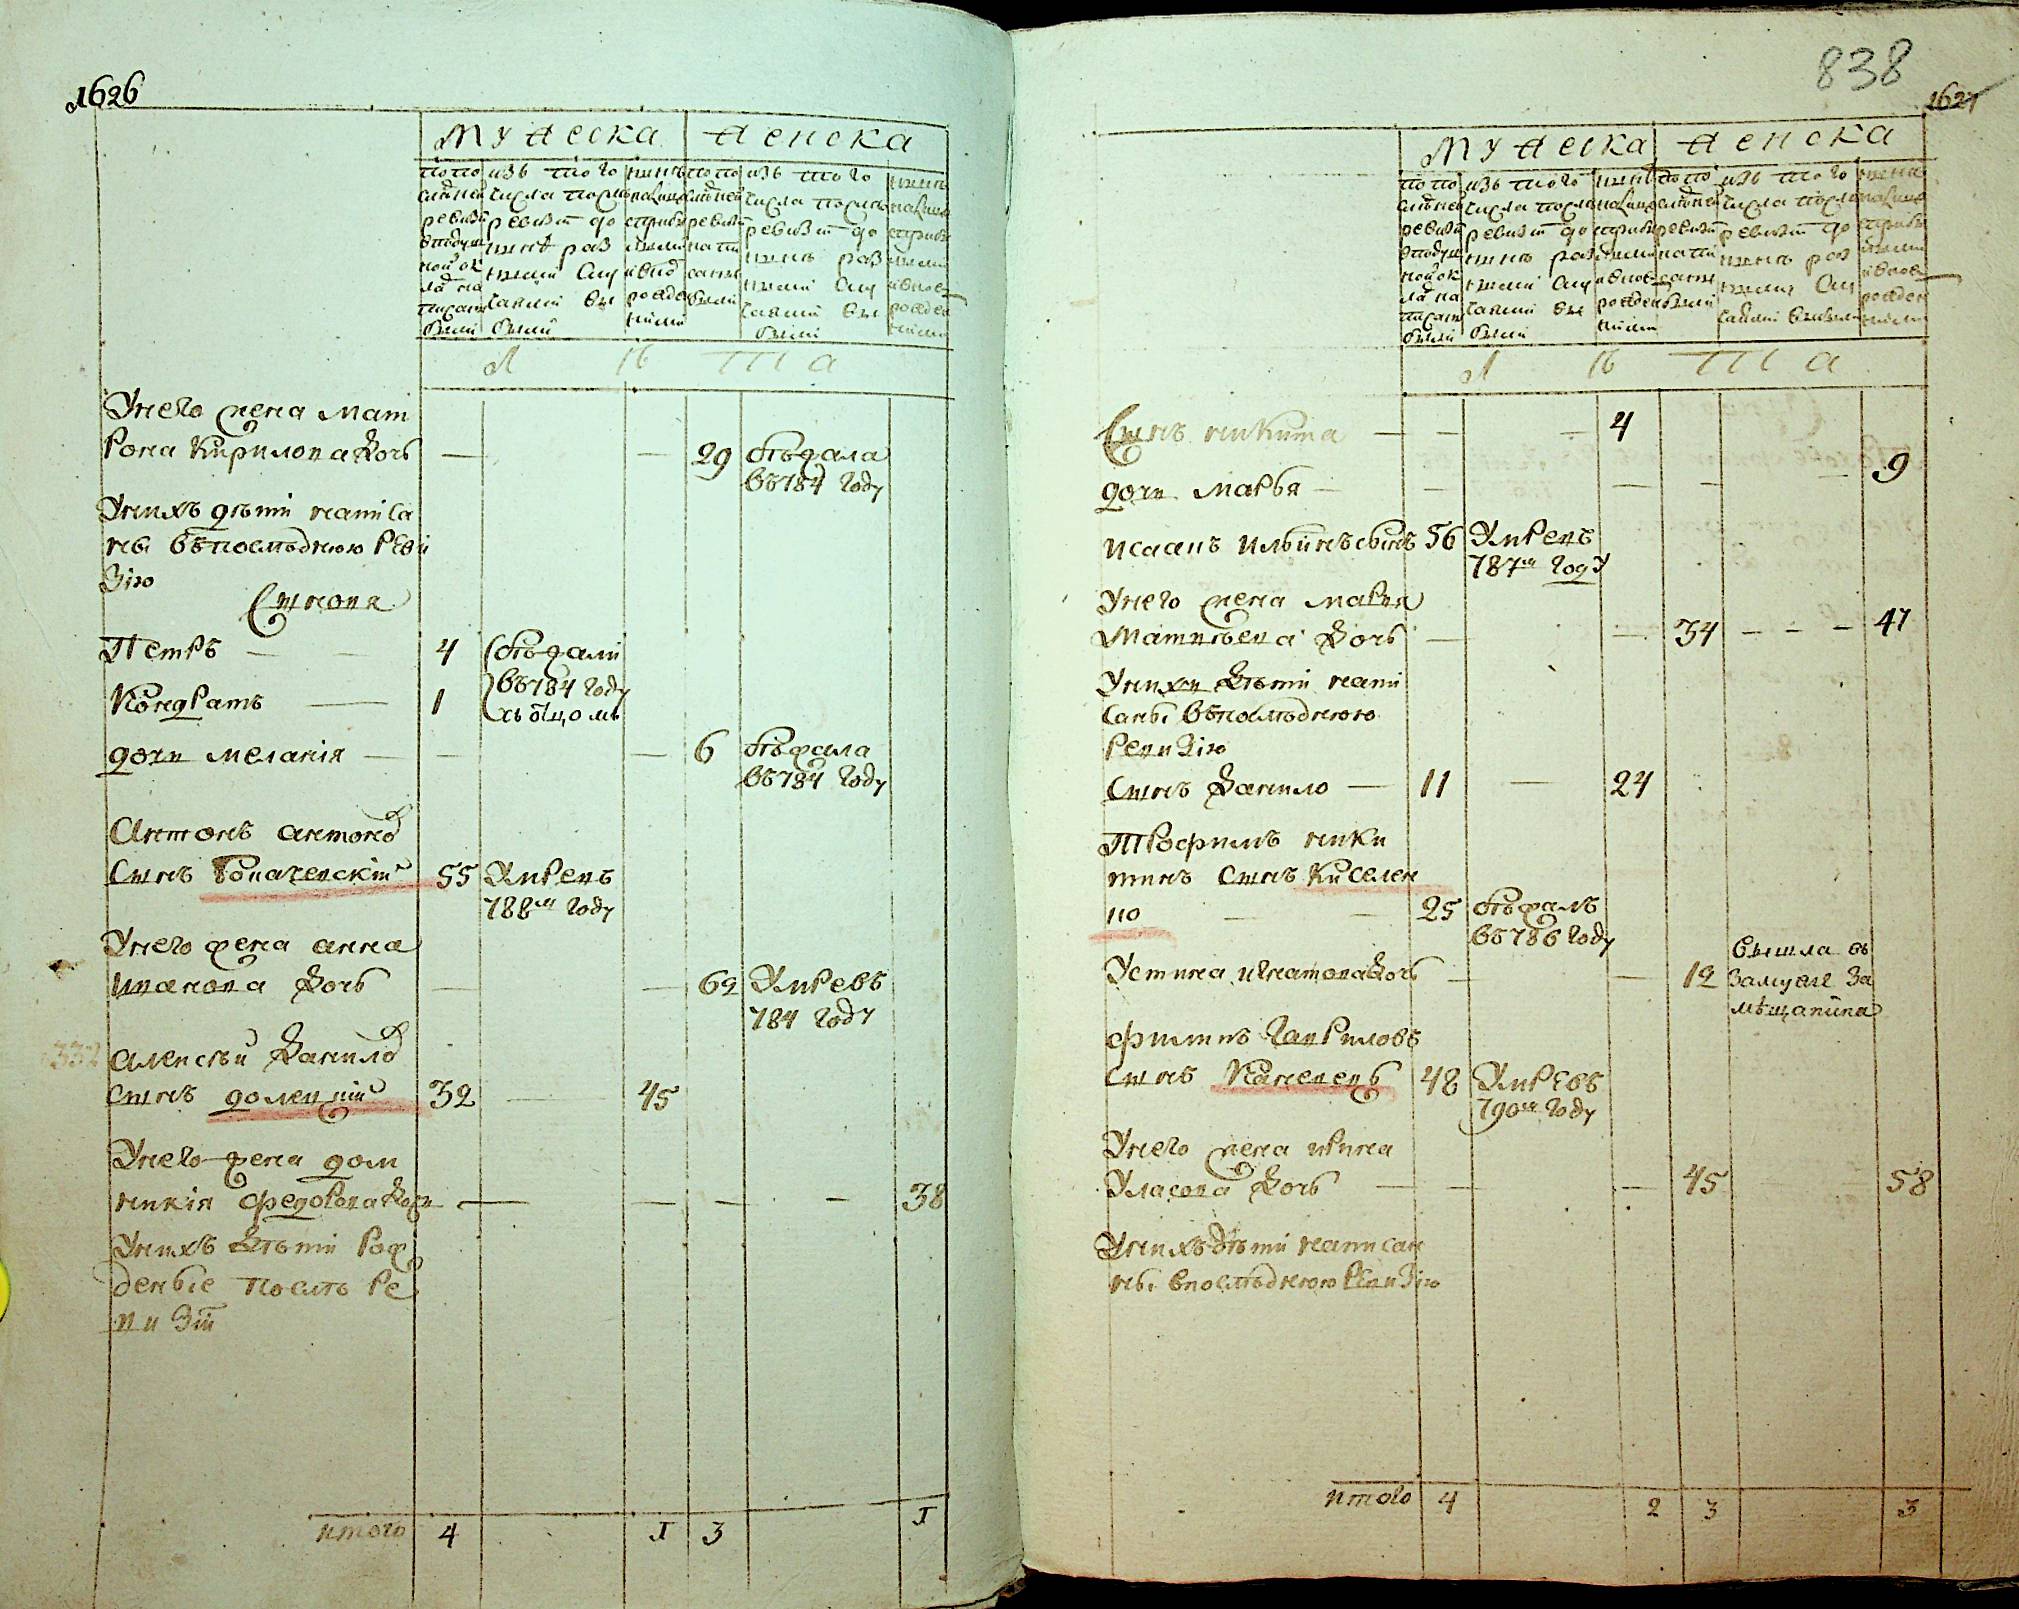 1626
Мужеска Женска
по по
следней
ревизіи
въ подуш
ной ок
ладъ на
писаны
были
изъ того
числа послѣ
ревизіи до
нынѣ раз
ными слу
чаями вы
были
нынѣ
налицо
съ прибы
лыми
и вновь
рожден
ными
по по
следней
ревизіи
напи
саны
были
изъ того
числа послѣ
ревизіи до
нынѣ раз
ными слу
чаями вы
были
нынѣ
налицо
съ прибы
лыми
и вновь
рожден
ными
Л ѣ т а
У него жена Мат
рона Кирилова дочь — — 29 бѣжала
въ 784 году
У нихъ дѣти написа
ны въ последнюю реви
зію
Сыновя
Петръ — — 4 бѣжали
въ 784 году
Кондратъ — 1 съ отцомъ
дочь меланія — — — 6 бѣжала
въ 784 году
Антонъ антонов
сынъ 55 Умре
788м году
У него жена анна
иванова дочь — — 62 Умре въ
784 году
332 Алексѣй Данилов
сынъ 32 — 45
У него жена дом
никія федорова дочь — — — — 38
У нихъ дѣти рож
деные послѣ ре
визіи
итого 4 1 3 1
838
1627
Мужеска Женска
по по
следней
ревизіи
въ подуш
ной ок
ладъ на
писаны
были
изъ того
числа послѣ
ревизіи до
нынѣ раз
ными слу
чаями вы
были
нынѣ
налицо
съ прибы
лыми
и вновь
рожден
ными
по по
следней
ревизіи
напи
саны
были
изъ того
числа послѣ
ревизіи до
нынѣ раз
ными слу
чаями выбыли
нынѣ
налицо
съ прибы
лыми
и вновь
рожден
ными
Л ѣ т а
Сынъ никита — — — 4
дочь марья — — — — — 9
Исаакъ Ильинъ сынъ 56 Умре въ
787м году
У него жена марія
Матвѣева дочь — — 34 — — — 47
У нихъ дѣти напи
саны въ последнюю
ревизію
Сынъ Данило — 11 — 24
Трофимъ ники
тинъ сынъ Киселен
ко — — 25 бѣжалъ
въ 786 году
Устина игнатова дочь — — 12 вышла въ
замуже за
мѣщанина
филипъ гавриловъ
сынъ Каневецъ 48 Умре въ
790м году
У него жена ирина
Уласова дочь — — — 45 58
У нихъ дѣти написан
ны в последнюю ревизію
итого 4 2 3 3